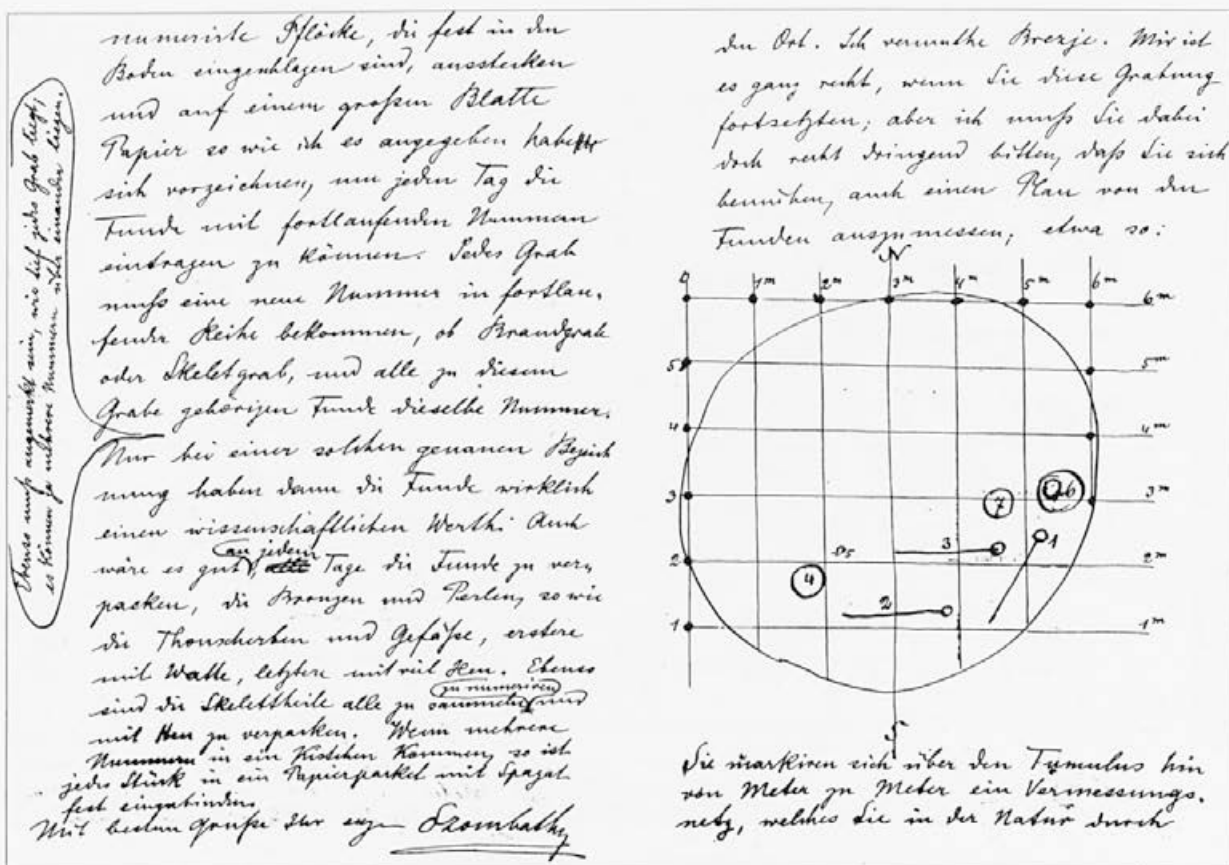 numerirte Pflöcke, die fest in den
Boden eingeschlagen sind, ausstecken
und auf einem großen Blatte
Papier so wie ich es angegeben habe
sich vorzeichnen, um jeden Tag die
Funde mit fortlaufenden Nummern
eintragen zu können. Jedes Grab
muß eine neue Nummer in fortlau-
fender Reihe bekommen, ob Brandgrab
oder Skeletgrab, und alle zu diesem
Grabe gehörigen Funde dieselbe Nummer.
Ebenso muß angemerkt sein, wie tief jedes Grab liegt;
es können ja mehrere Nummern über einander liegen.
Nur bei einer solchen genauen Bezeich
nung haben dann die Funde wirklich
einen wissenschaftlichen Werth. Auch
wäre es gut, an jedem Tage die Funde zu ver-
packen, die Bronzen und Perlen, so wie
die Thonscherben und Gefäße, erstere
mit Watte, letztere mit viel Heu. Ebenso
sind die Skelettheile alle zu numeriren und
mit Heu zu verpacken. Wenn mehrere
Nummern in ein Kistchen kommen, so ist
jedes Stück in ein Papierpacket mit Spagat
fest einzubinden.
Mit bestem Gruße Ihr Szombathy
den Ort. Ich vermuthe Brezje. Mir ist
es ganz recht, wenn Sie diese Grabung
fortsetzten; aber ich muß Sie dabei
doch recht dringend bitten, daß Sie sich
bemühen, auch einen Plan von den
Funden auszumessen; etwa so:
N
0 1m 2m 3m 4m 5m 6m
6m
5 5m
4 4m
3 7 6 3m
3 1
2 5 2m
4
2
1 1m
S
Sie markiren sich über den Tumulus hin
von Meter zu Meter ein Vermessungs-
netz, welches Sie in der Natur durch